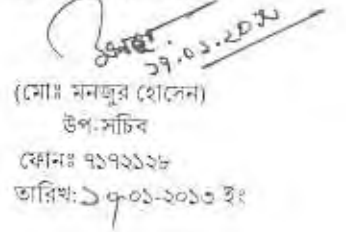 ১৭.০১.২০১৩
(মোঃ মনজুর হোসেন)
উপ-সচিব
ফোনঃ ৭১৭২১২৮
তারিখ: ১৭-০১-২০১৩ ইং